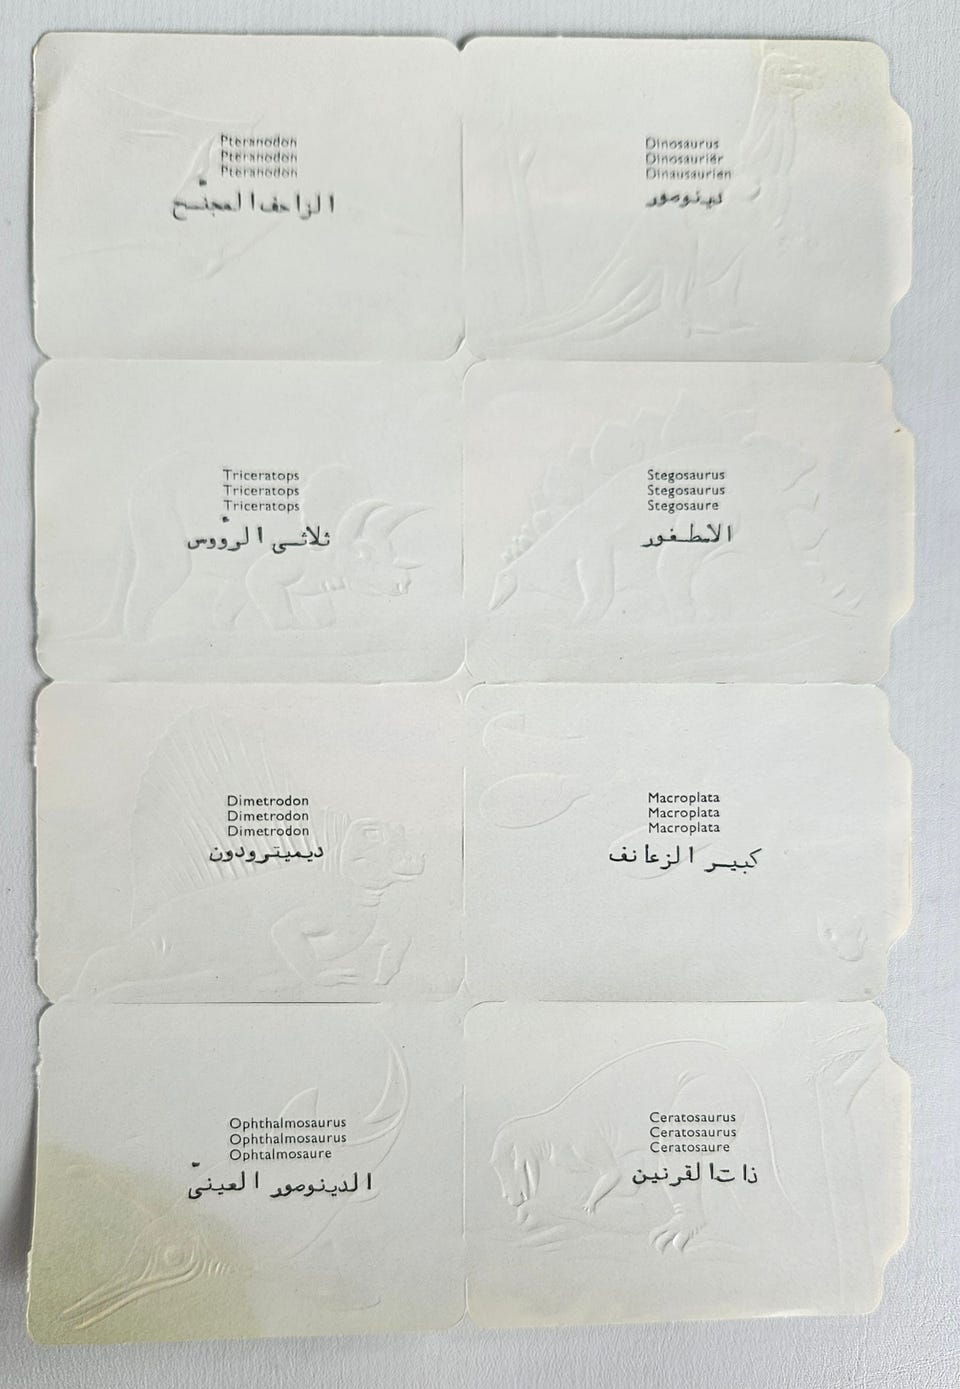 Pteranodon
Pteranodon
Pteranodon
الزاحف المجنّح
Dinosaurus
Dinosauriër
Dinausaurien
دينوصور
Triceratops
Triceratops
Triceratops
ثلاثي الرّؤوس
Stegosaurus
Stegosaurus
Stegosaure
الاسطفور
Dimetrodon
Dimetrodon
Dimetrodon
ديميترودون
Macroplata
Macroplata
Macroplata
كبير الزعانف
Ophthalmosaurus
Ophthalmosaurus
Ophtalmosaure
الدينوصور العينيّ
Ceratosaurus
Ceratosaurus
Ceratosaure
ذات القرنين